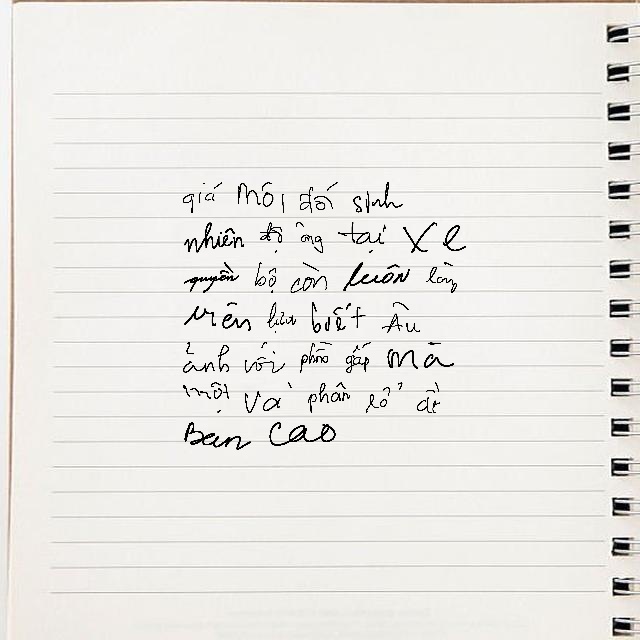 giá Mỗi đối sinh
nhiên độ ông tại Xe
quyền bộ còn luôn lòng
viên lựu biết Âu
ảnh với phồ gấp Mã
một Và phân sổ để
Ban Cao